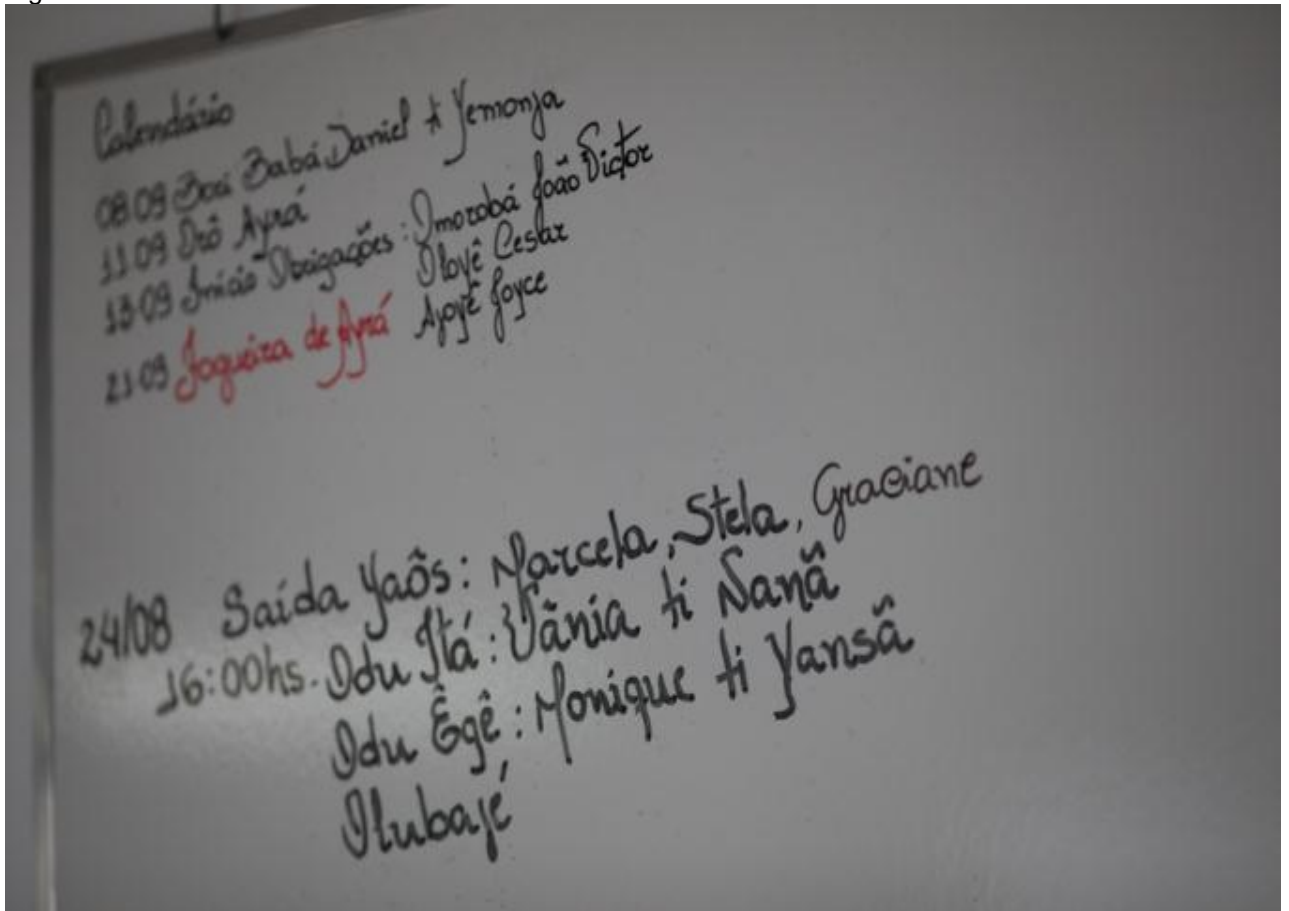 Calendário
08.09 Bori Babá Daniel ti Yemonja
11.09 Orô Ayrá
13.09 Início Obrigações: Omorobá João Victor
Oloyê Cesar
21.09 Fogueira de Ayrá Ajoyê Joyce
24/08 Saída Yaôs: Marcela, Stela, Graciane
16:00hs. Odu Itá: Vânia ti Nanã
Odu Êgê: Monique ti Yansã
Olubajé